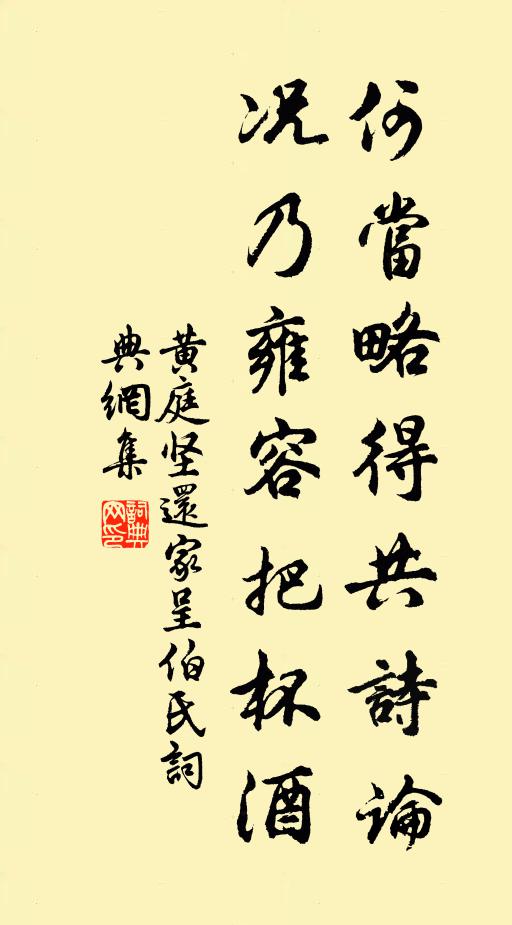 何當略得共詩論
况乃雍容把杯酒
黄庭坚還家呈伯氏詞
典網集
詞典網印